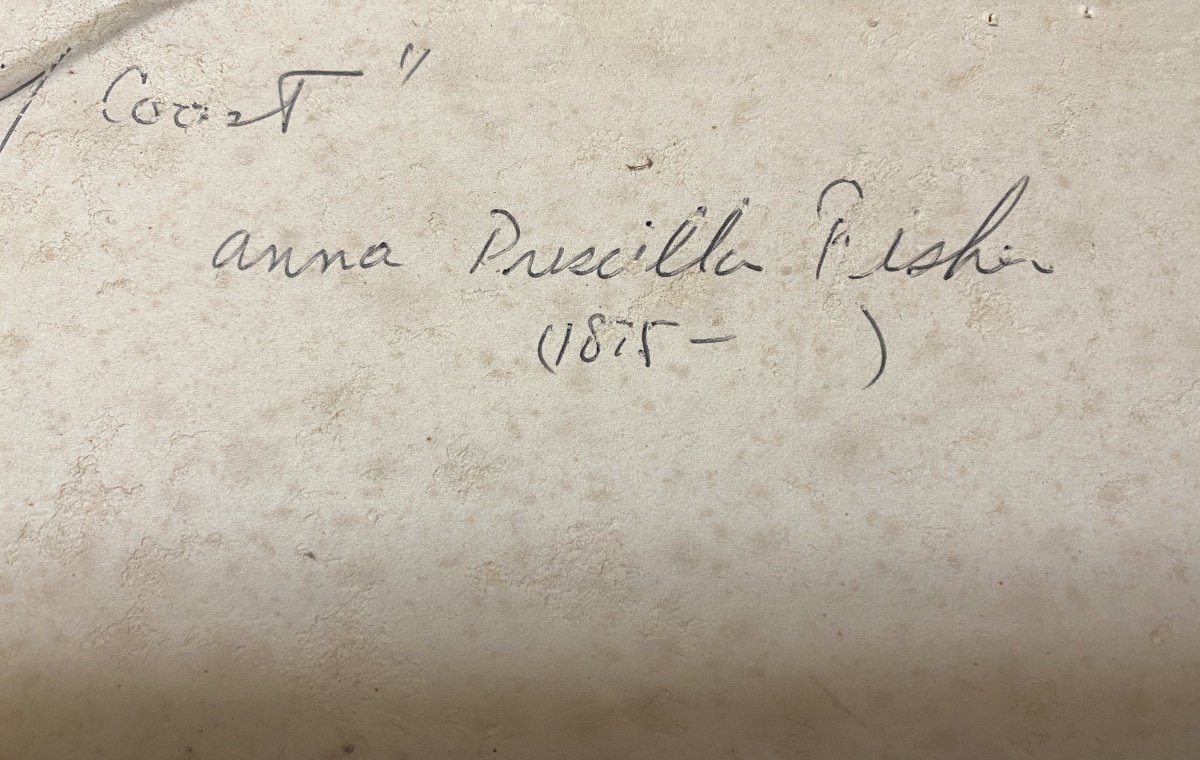 Coast"
Anna Priscilla Fisher
(1875 - )